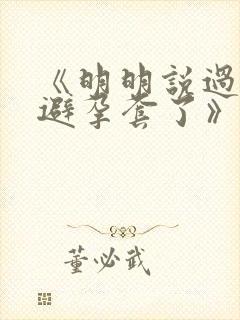 《明明説過
避孕套了》
董必武